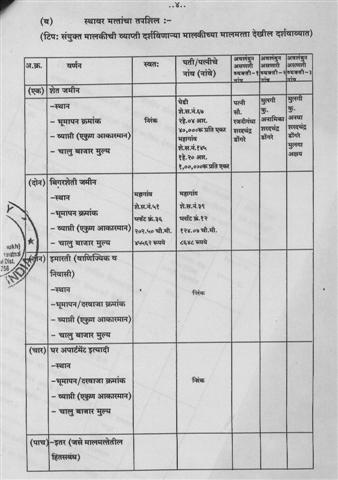 ..४..
(ब) स्थावर मत्तांचा तपशिल :-
(टिप: संयुक्त मालकीची व्याप्ती दर्शविणाऱ्या मालकीच्या मालमत्ता देखील दर्शवाव्यात)
अ.क्र. वर्णन स्वत: पती/पत्नीचे नांव (नांवे) अवलंबून असणारी व्यक्ती-१ नांव अवलंबून असणारी व्यक्ती-२ नांव अवलंबून असणारी व्यक्ती-३ नांव
(एक) शेत जमीन
-स्थान
- भूमापन क्रमांक
- व्याप्ती (एकुण आकारमान)
- चालु बाजार मुल्य
निरंक
शे.स.नं.६७
१हे.०४ आर.
४०,०००रु प्रति एकर
महागांव
शे.स.नं.१४५
१हे.२० आर.
१,००,०००रु प्रति एकर
पत्नी
सौ.
रजनीगंधा
शरदचंद्र
डोंगरे
मुलगी
कु.
अनामिका
शरदचंद्र
डोंगरे
मुलगी
कु.
अनघा
शरदचंद्र
डोंगरे
मुलगा
अक्षय
(दोन) बिगरशेती जमीन
-स्थान
-भूमापन क्रमांक
-व्याप्ती (एकुण आकारमान)
-चालु बाजार मुल्य
महागांव
शे.स.नं.५१
प्लॉट क्रं.३६
२०२.५० चौ.मी.
४५५६२ रूपये
महागांव
शे.स.नं.३९
प्लॉट क्रं.१२
१२४.०७ चौ.मी.
८६४८ रूपये
इमारती (वाणिज्यिक व
निवासी)
-स्थान
-भूमापन/दरवाजा क्रमांक
- व्याप्ती (एकुण आकारमान)
- चालु बाजार मुल्य
निरंक
(चार) घर अपार्टमेंट इत्यादी
-स्थान
-भूमापन/दरवाजा क्रमांक
- व्याप्ती (एकुण आकारमान)
- चालु बाजार मुल्य
निरंक
(पाच) -इतर (जसे मालमत्तेतील
हितसबंध)
INDIA